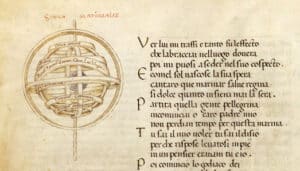 Spera materialis
Ver lui mi trassi e tanto fu leffecto
che labracciai nelluogo dovera
poi mi puosi a seder nel suo cospecto
E comel sol nascose la sua spera
cantaro que marinar salue regina
si dolce quanto insieme mai la sera
Partita quella gente pelegrina
incominciai o caro padre mio
non perdiam tempo per questa marina
Tu sai il mio voler tu sai il disio
per che rispose levatosi in pie
in un pensier eravam tu e io
Poi comincio lo çodiaco